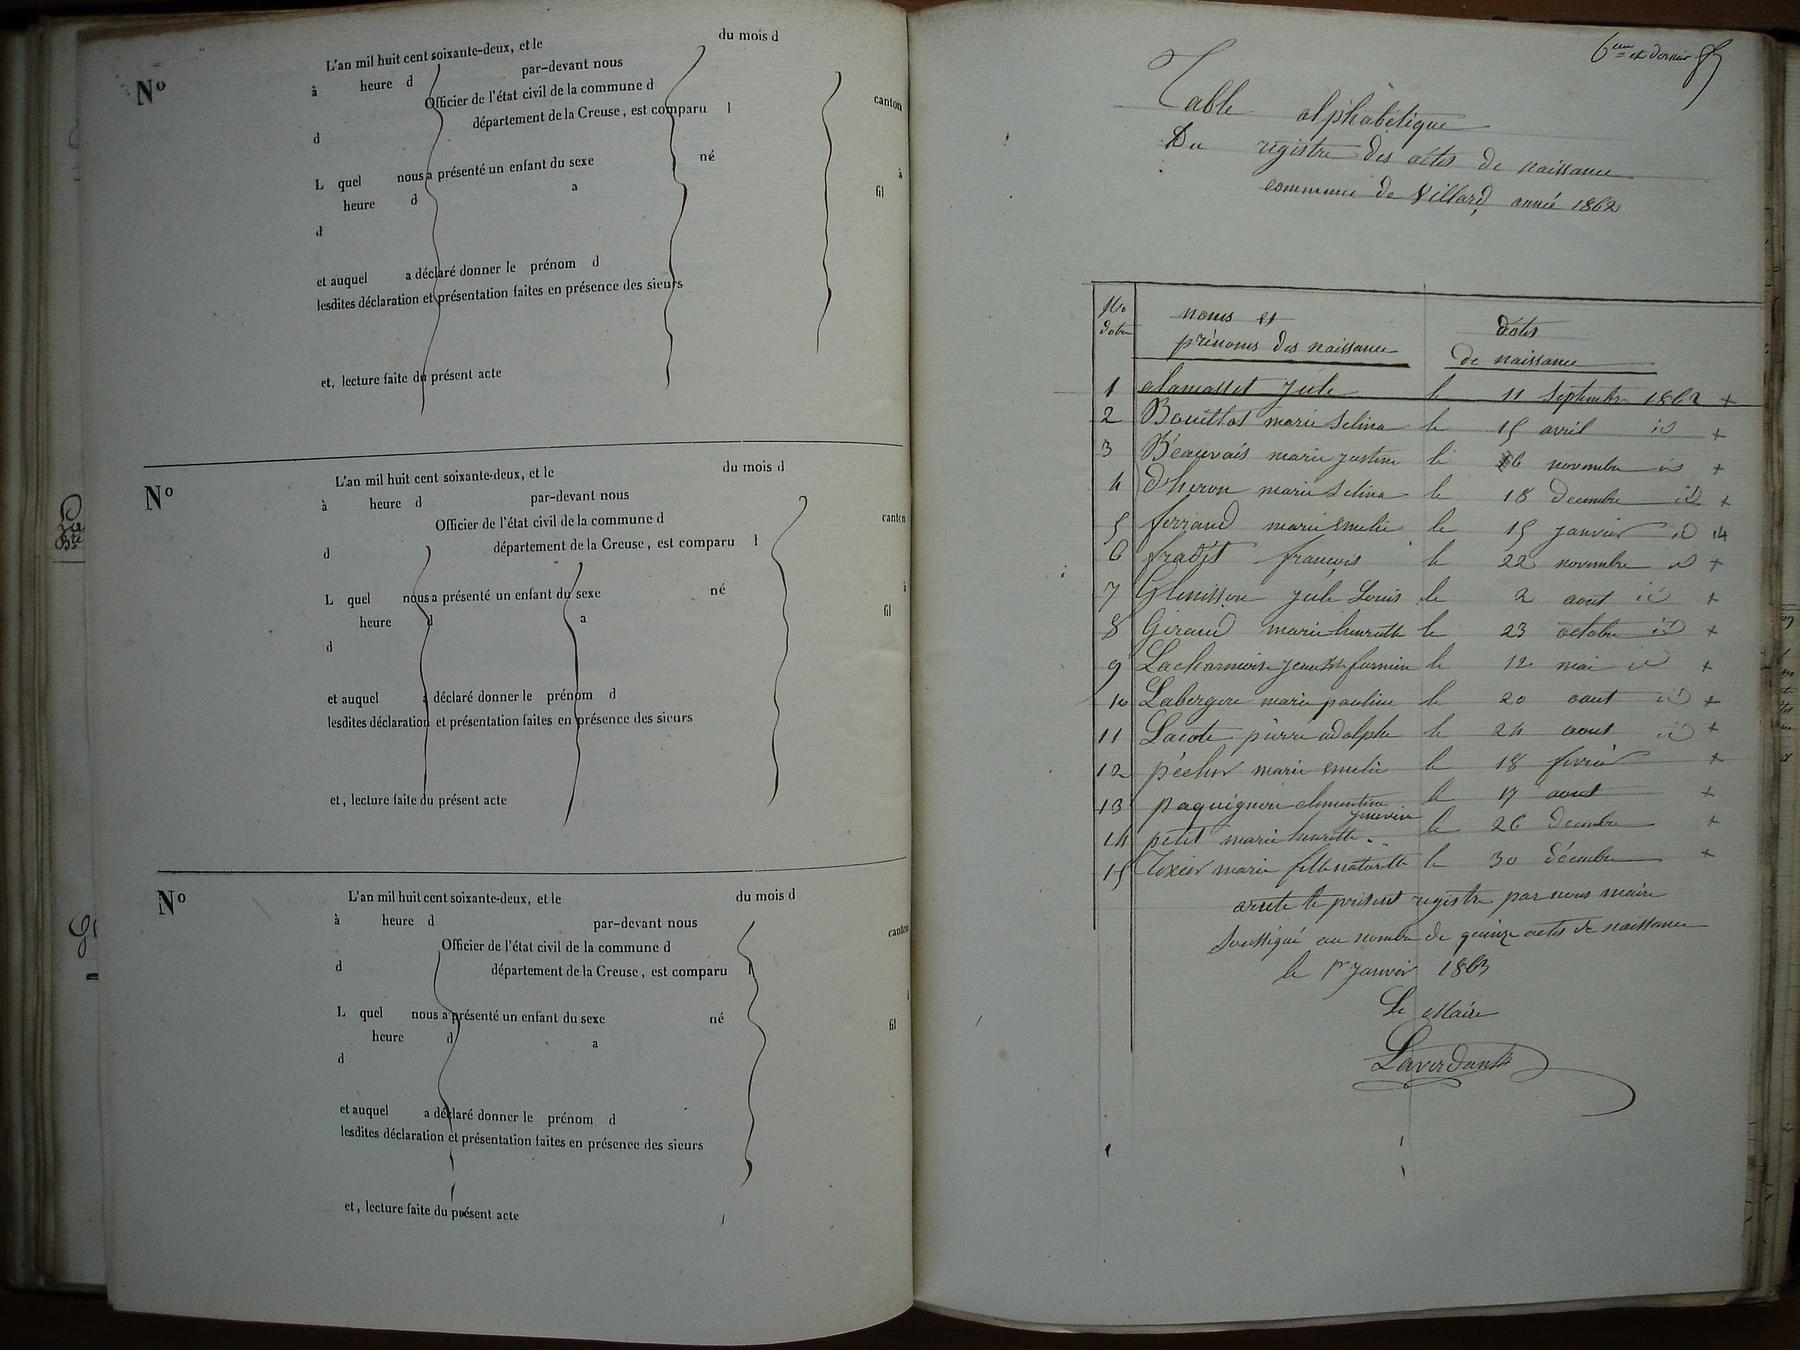 L'an mil huit cent soixante-deux, et le du mois d
No à heure d par-devant nous
Officier de l'état civil de la commune d canton
d département de la Creuse, est comparu l
L quel nous a présenté un enfant du sexe né à
heure d a fil
d
et auquel a déclaré donner le prénom d
lesdites déclaration et présentation faites en présence des sieurs
et, lecture faite du présent acte
L'an mil huit cent soixante-deux, et le du mois d
No à heure d par-devant nous
Officier de l'état civil de la commune d canton
d département de la Creuse, est comparu l
L quel nous a présenté un enfant du sexe né à
heure d a fil
d
et auquel a déclaré donner le prénom d
lesdites déclaration et présentation faites en présence des sieurs
et, lecture faite du présent acte
L'an mil huit cent soixante-deux, et le du mois d
No à heure d par-devant nous
Officier de l'état civil de la commune d canton
d département de la Creuse, est comparu l
L quel nous a présenté un enfant du sexe né à
heure d a fil
d
et auquel a déclaré donner le prénom d
lesdites déclaration et présentation faites en présence des sieurs
et, lecture faite du présent acte
6eme et dernier
Table alphabétique
Du registre des actes de naissance
commune de Villard, année 1862
No noms et dates
prénoms des naissance de naissance
1 alamasset Jule le 11 Septembre 1862 +
2 Bouillot marie Selina le 15 avril id +
3 Beauvais marie justine le 16 novembre id +
4 Dheron marie Selina le 18 decembre id +
5 ferrand marie emelie le 15 janvier id +
6 fradet françois le 22 novembre id +
7 Glenisson jule Louis le 2 aout id +
8 Giraud marie henriette le 23 octobre id +
9 Lacharnoise jean Bte furmin le 12 mai id +
10 Labergere marie pauline le 20 aout id +
11 Lacote pierre adolphe le 24 aout id +
12 péchut marie emelie le 18 fevrier +
13 paquignon clementine le 17 aout +
14 petit marie henriette le 26 decembre +
15 Texier marie fille naturelle le 30 décembre +
arrete le présent registre par nous maire
Soussigné au nombre de quinze actes de naissance
le 1er Janvier 1863
Le Maire
Laverdant